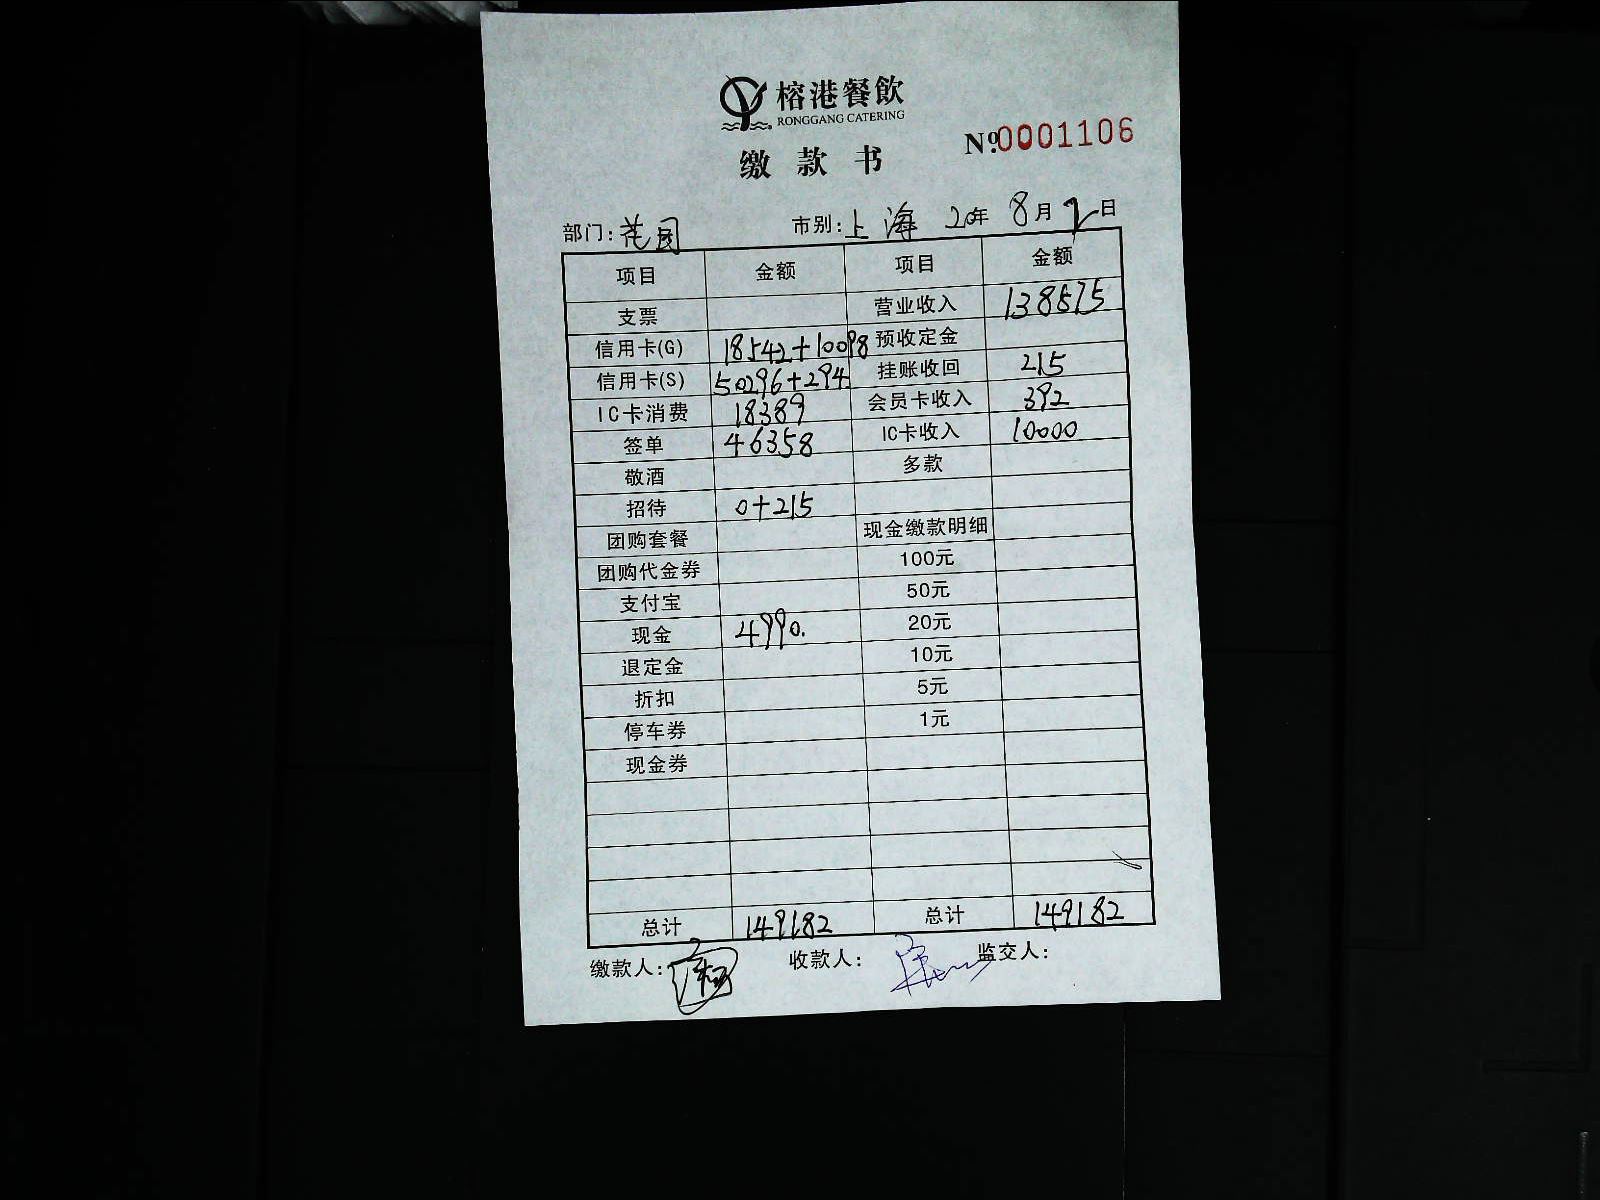 榕港餐飲
RONGGANG CATERING
缴款书
Nº.0001106
部门:花园 市别:上海 20年 8月 2日
项目 金额 项目 金额
支票 营业收入 138575
信用卡(G) 18542+10098 预收定金
信用卡(S) 50296+294 挂账收回 215
IC卡消费 18389 会员卡收入 392
签单 46358 IC卡收入 10000
敬酒 多款
招待 0+215
团购套餐 现金缴款明细
团购代金券 100元
支付宝 50元
现金 4990. 20元
退定金 10元
折扣 5元
停车券 1元
现金券
总计 149182 总计 149182
缴款人: 收款人: 监交人: